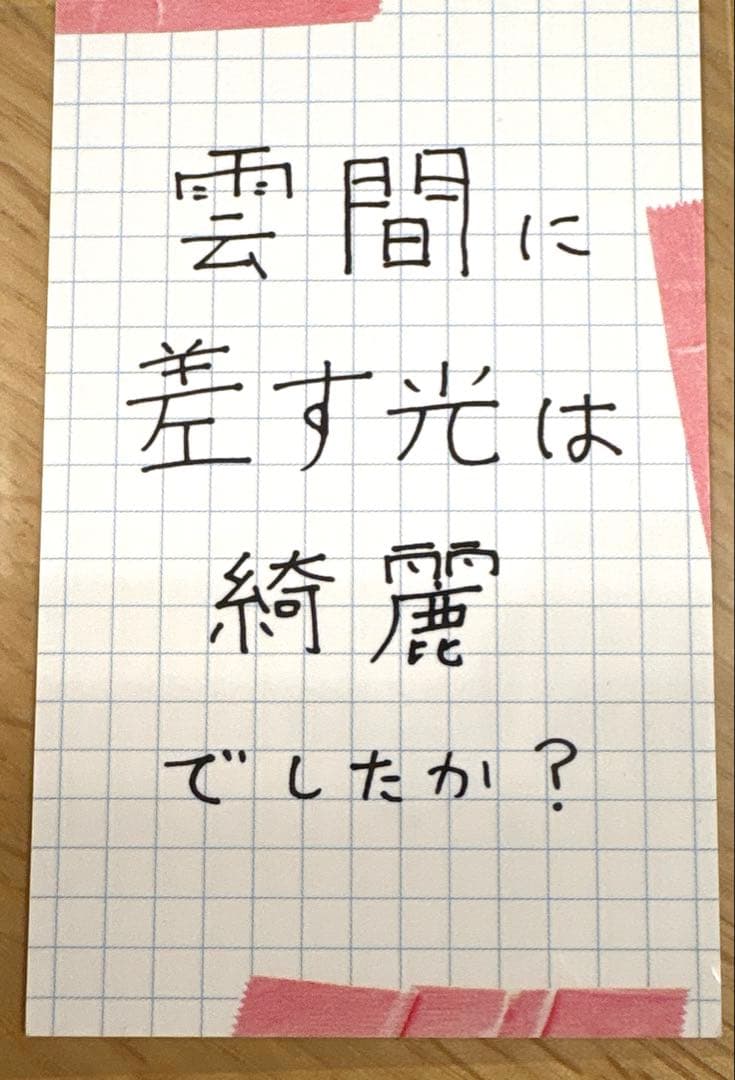 雲間に
差す光は
綺麗
でしたか?